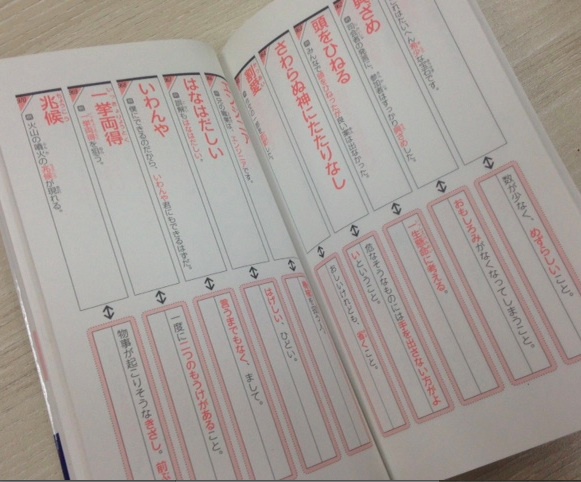 これはたいへん
なものです。
数が少なく、めずらしいこと。
興さめ
おもしろみがなくなってしまうこと。
頭をひねる
みんなで頭をひねったが良い案は出なかった。
一生懸命に考える。
さわらぬ神にたたりなし
危なそうなものには手を出さない方がよ
いということ。
割愛
おしいけれども、省くこと。
はなはだしい
誤解もはなはだしい。
はげしい。ひどい。
いわんや
僕にできるのだから、いわんや君にもできるはずだ。
言うまでもなく、まして。
一挙両得
一挙両得を狙う。
一度に二つのもうけがあること。
兆候
火山の噴火の兆候が現れる。
物事が起こりそうなきざし。前